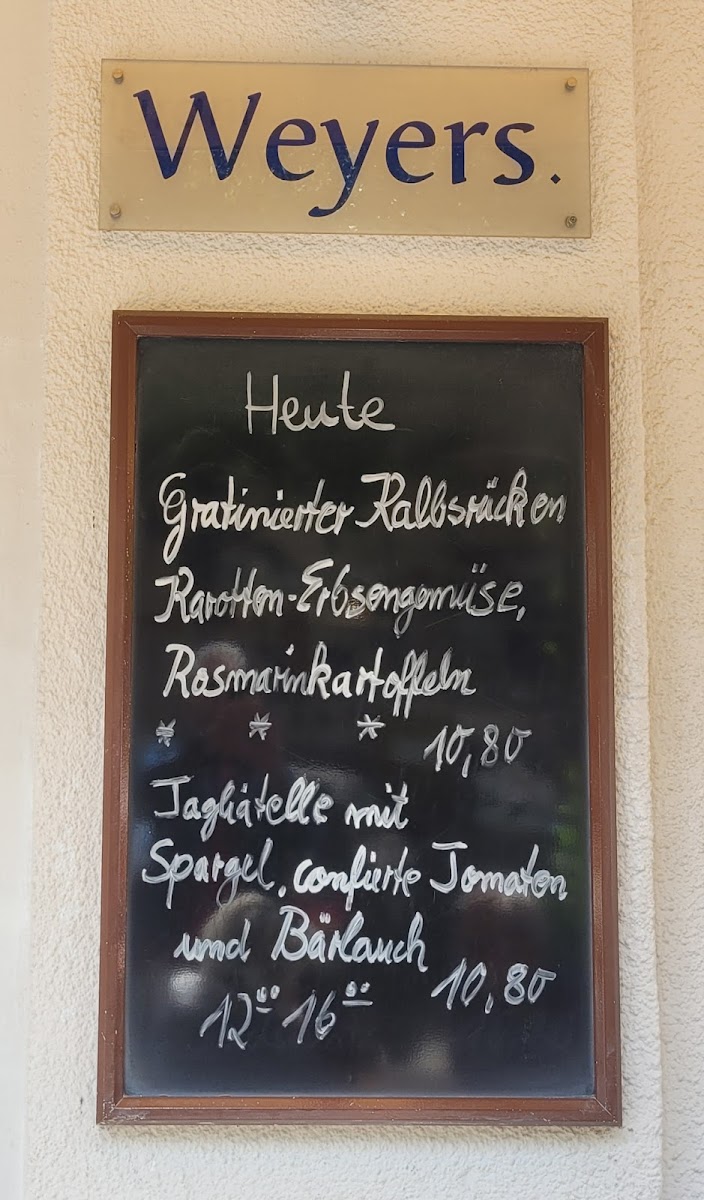 Weyers.
Heute
Gratinierter Kalbsrücken
Karotten-Erbsengemüse,
Rosmarinkartoffeln
* * * 10,80
Tagliatelle mit
Spargel, confierte Tomaten
und Bärlauch
12⁰⁰ 16⁰⁰ 10,80